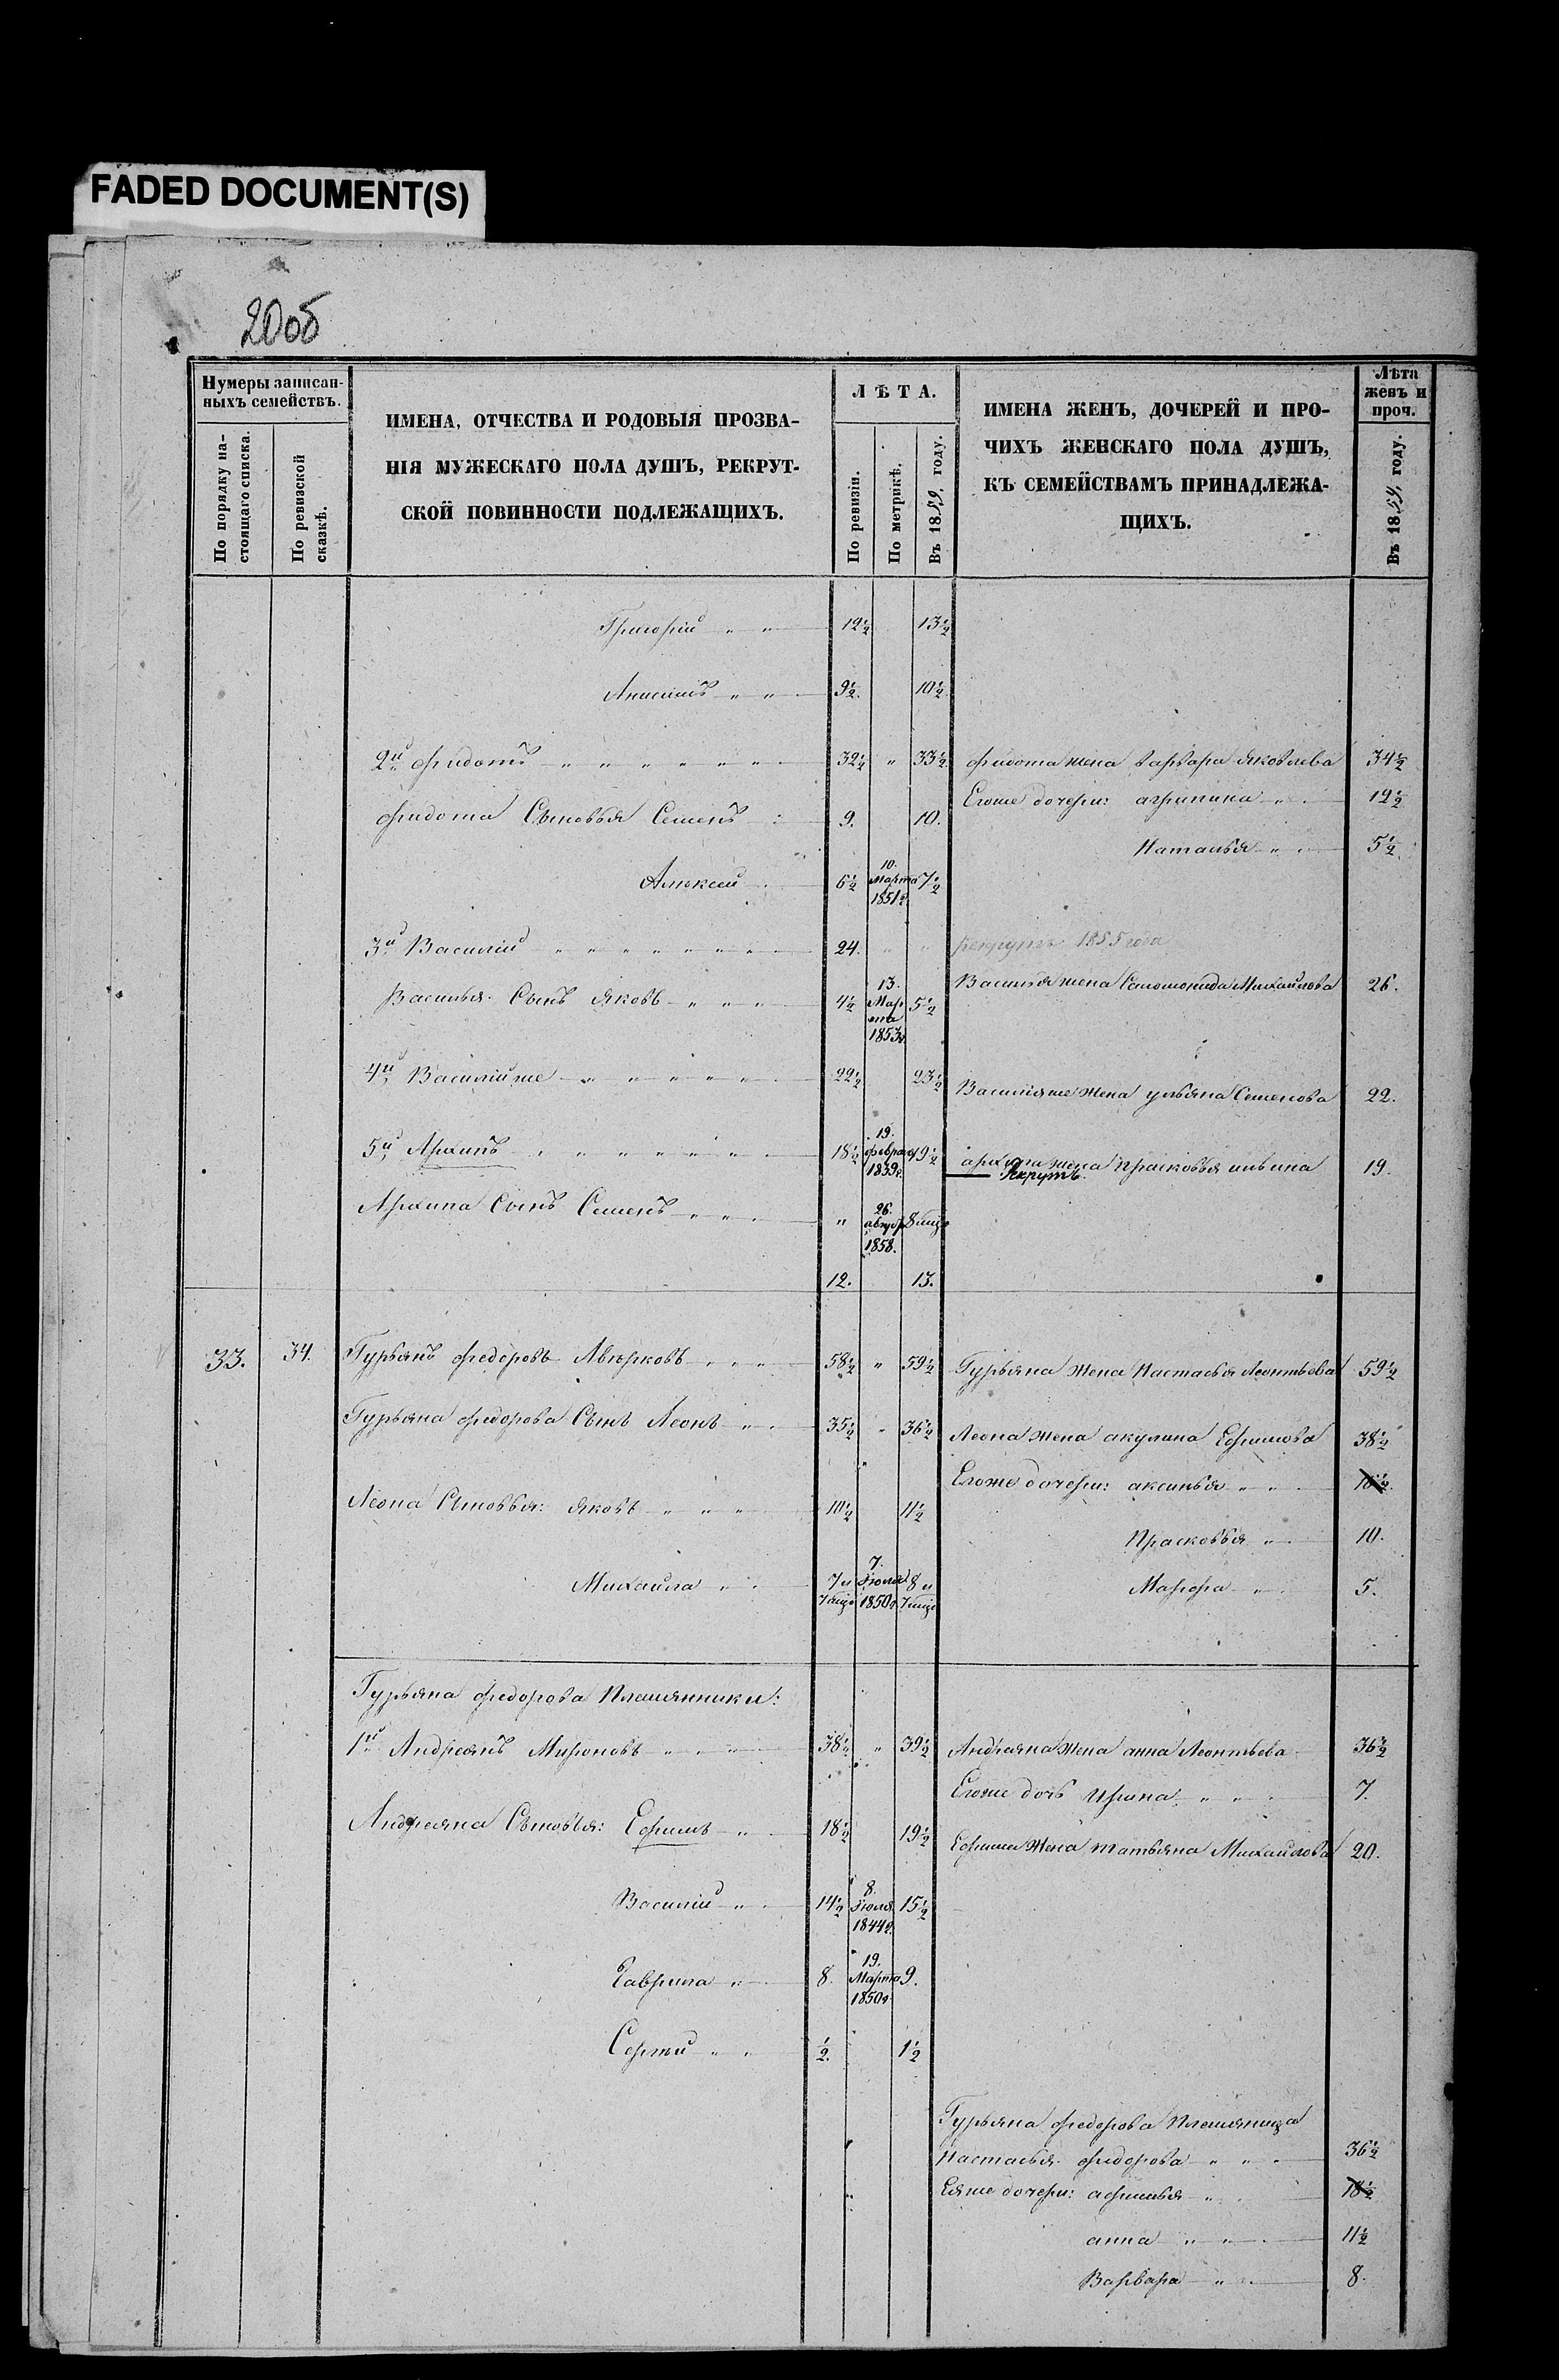 FADED DOCUMENT(S)
20об
Нумеры записан-
ныхъ семействъ.
По порядку на-
стоящаго списка.
По ревизской
сказкѣ.
ИМЕНА, ОТЧЕСТВА И РОДОВЫЯ ПРОЗВА-
НІЯ МУЖЕСКАГО ПОЛА ДУШЪ, РЕКРУТ-
СКОЙ ПОВИННОСТИ ПОДЛЕЖАЩИХЪ.
ЛѢТА.
По ревизіи.
По метрикѣ.
Въ 1859 году.
ИМЕНА ЖЕНЪ, ДОЧЕРЕЙ И ПРО-
ЧИХЪ ЖЕНСКАГО ПОЛА ДУШЪ,
КЪ СЕМЕЙСТВАМЪ ПРИНАДЛЕЖА-
ЩИХЪ.
Лѣта
женъ и
проч.
Въ 1859 году.
Григорій " " 12½ 13½
Анисимъ " " 9½. 10½.
2й Федотъ " " " " " " " 32½ " 33½ Федота жена Варвара Яковлева 34½
Егоже дочери: агрипина " 12½
Федота Сыновья Семенъ 9. 10.
Наталья " 5½
Алексей 6½ 10. Марта 1851г. 7½
3й Василій " " " " " " " 24. " " рекрутъ 1855 года
Василья Сынъ Яковъ " " " 4½ 13. Марта 1853г. 5½ Василья жена Соломонида Михайлова 26.
4й Василій же " " " " " 22½ 23½ Василія же жена ульяна Семенова 22.
5й Архипъ " " " " " " 18½ 19. февраля 1839г. 19½ архипа жена Прасковья ильина 19.
Рекрутъ.
Архипа Сынъ Семенъ " " " 26. 1858. 8 мѣц
12. 13.
33. 34. Гурьянъ Федоровъ Авѣрковъ " " " 58½ " 59½ Гурьяна жена Настасья Леонтьева 59½
Гурьяна Федорова Сынъ Леонъ " 35½ " 36½ Леона жена акулина Ефимова 38½
Егоже дочери: аксинья " " 18½.
Леона Сыновья: Яковъ " " " 10½ 11½
Прасковья " 10.
Михайла " 7 и 7 мѣц 7. Іюля 1850г. 8 и 7 мѣц Марфа " 5.
Гурьяна Федорова Племянники:
1й Андреянъ Мироновъ " " " 38½ " 39½ Андреяна жена анна Леонтьева 36½
Егоже дочь Ирина " " 7.
Андреяна Сыновья: Ефимъ " 18½ 19½ Ефима жена татьяна Михайлова 20.
Василій " 14½ 8. Іюля 1844г. 15½
Гаврила " 8. 19. Марта 1850г. 9.
Сергей " " ½. 1½
Гурьяна Федорова Племяница
Настасья Федорова " " " 36½
Еяже дочери: афимья " 18½
анна " " 11½
Варвара " 8.